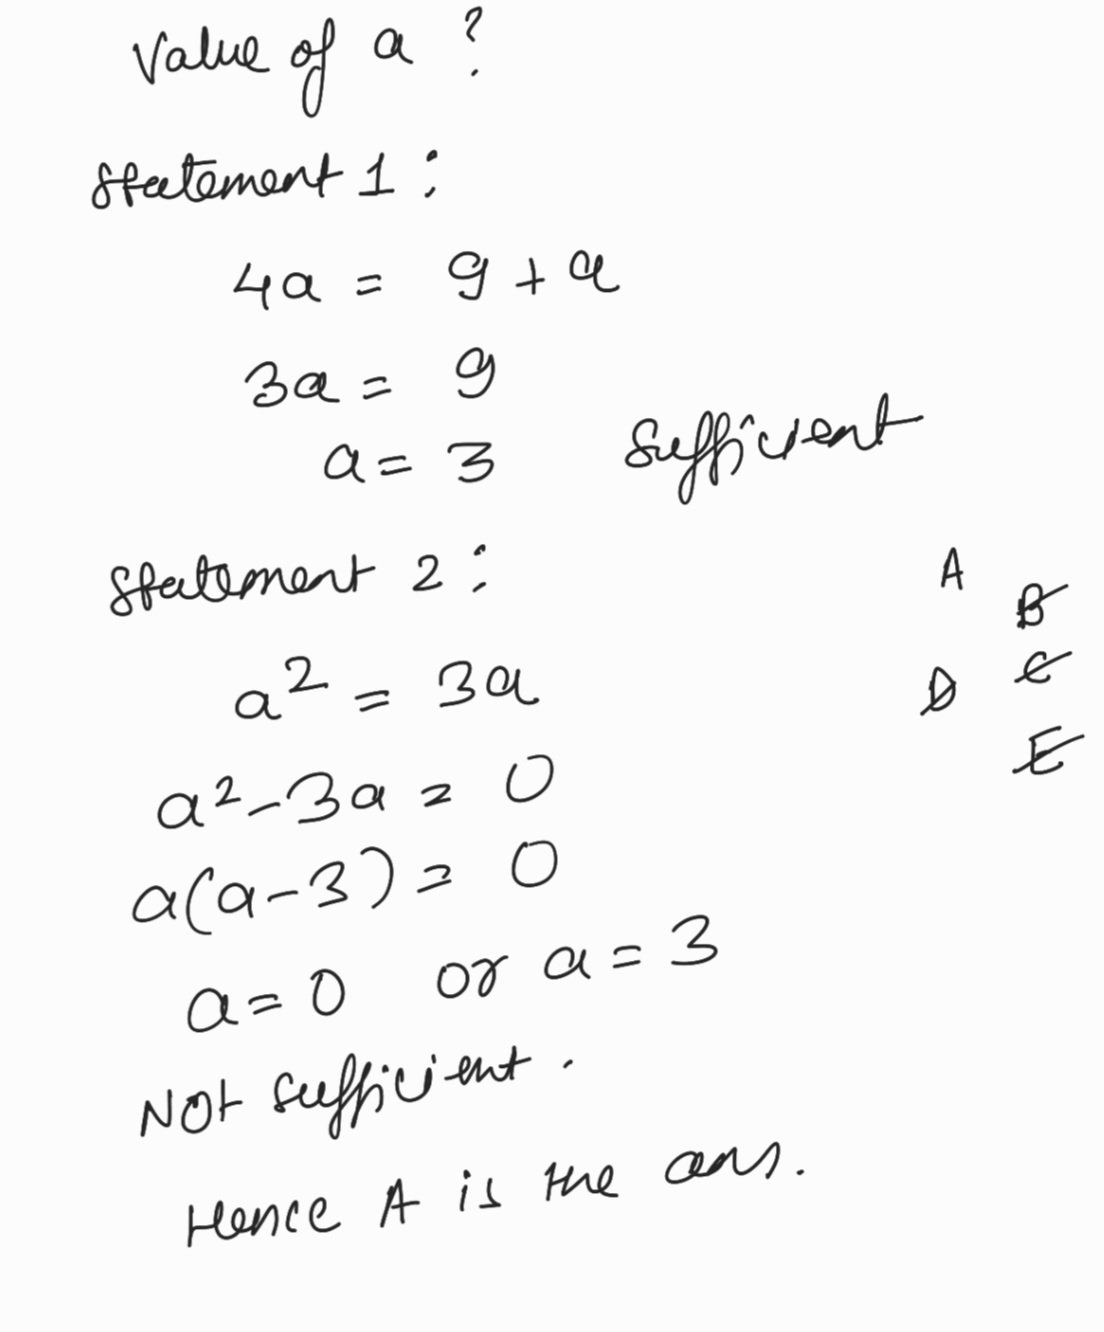 Value of a ?
Statement 1 :
4a = 9 + a
3a = 9
a = 3 Sufficient
Statement 2 :
a² = 3a
a² - 3a = 0
a(a-3) = 0
a = 0 or a = 3
NOt Sufficient .
Hence A is the ans.
A B
D C
E